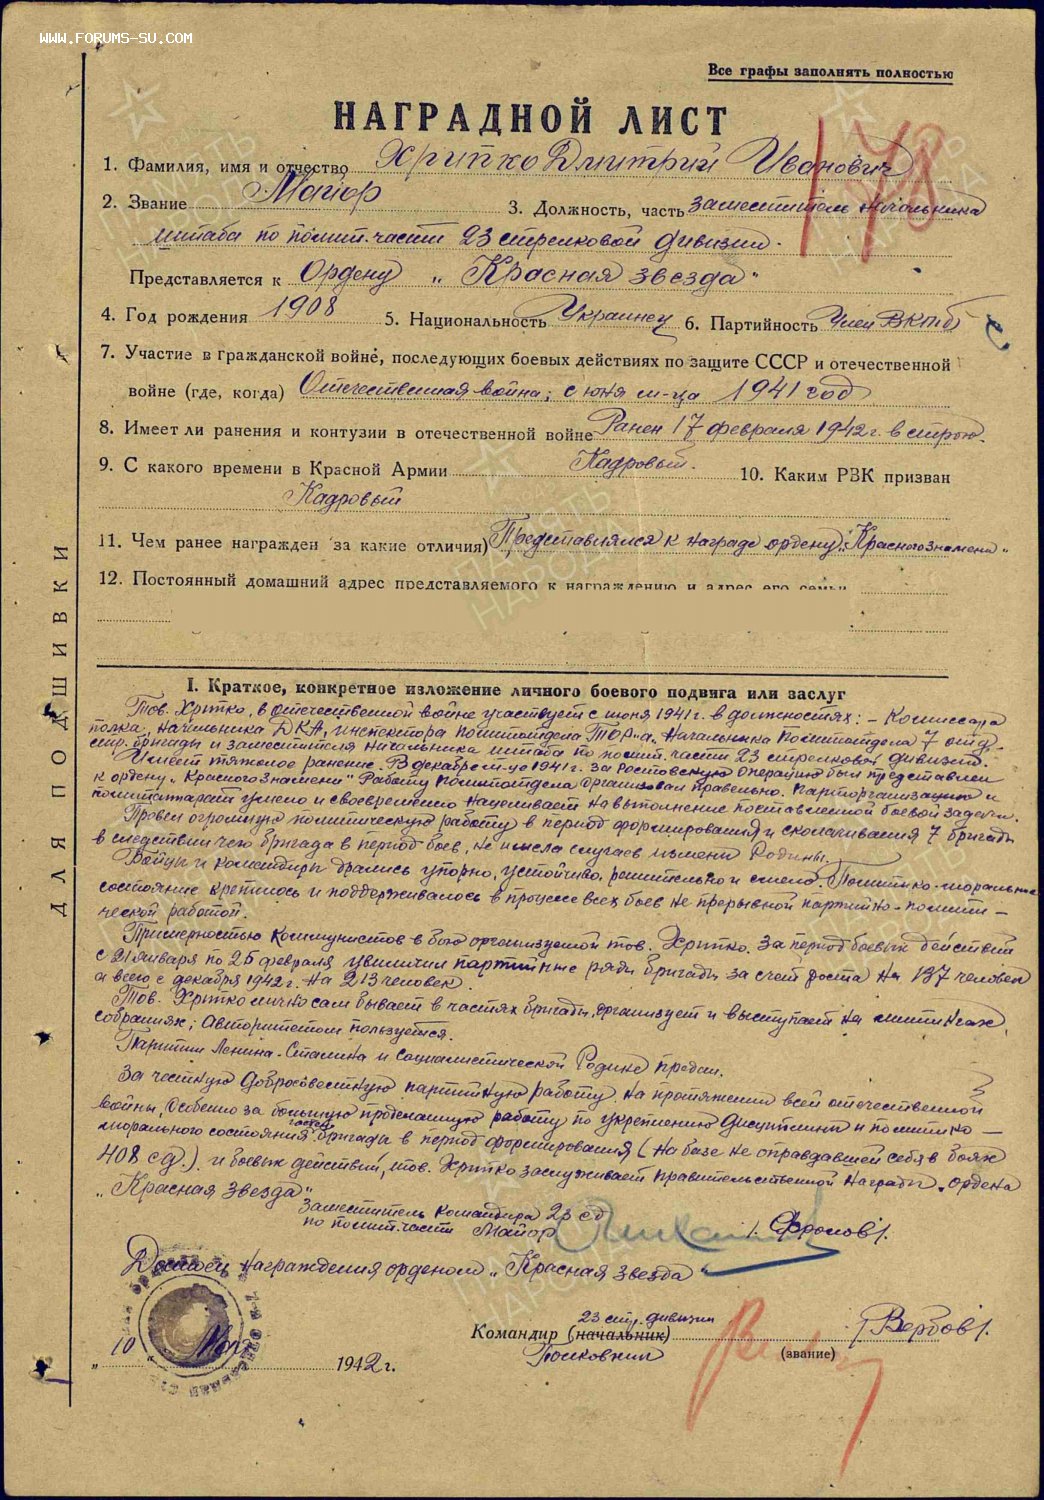 WWW.FORUMS-SU.COM
Все графы заполнять полностью
НАГРАДНОЙ ЛИСТ
178
1. Фамилия, имя и отчество Хрипко Дмитрий Иванович
2. Звание Майор 3. Должность, часть заместитель начальника
штаба по полит.части 23 стрелковой дивизии.
Представляется к Ордену „Красная звезда"
4. Год рождения 1908 5. Национальность Украинец 6. Партийность Член ВКПб
7. Участие в гражданской войне, последующих боевых действиях по защите СССР и отечественной
войне (где, когда) Отечественная война; с июня м-ца 1941 год
8. Имеет ли ранения и контузии в отечественной войне Ранен 17 февраля 1942 г. в строю.
9. С какого времени в Красной Армии Кадровый. 10. Каким РВК призван
Кадровый
11. Чем ранее награжден за какие отличия) Представлялся к награде ордену „Красного знамени"
12. Постоянный домашний адрес представляемого к награждению и адрес его семьи
ДЛЯ ПОДШИВКИ
I. Краткое, конкретное изложение личного боевого подвига или заслуг
Тов. Хрипко, в отечественной войне участвует с июня 1941 г. в должностях: – Комиссара
полка, начальника ДКА, инспектора политотдела, Начальника Политотдела 7 отд.
стр. бригады и заместителя начальника штаба по полит. части 23 стрелковой дивизии.
Имеет тяжолое ранение. В декабре м-це 1941 г. за Ростовскую операцию был представлен
к ордену „Красного знамени" Работу политотдела организовал правильно. Парторганизацию и
политаппарат умело и своевременно нацеливает на выполнение поставленной боевой задачи.
Провел огромную политическую работу в период формирования и сколачивания 7 бригады
в следствии чего бригада в период боев, не имела случаев измены Родины.
Бойцы и командиры дрались упорно, устойчиво, решительно и смело. Политико-моральное
состояние крепилось и поддерживалось в процессе всех боев не прерывной партийно-полити–
ческой работой.
Примерностью коммунистов в бою организуемой тов. Хрипко. За период боевых действий
с 21 января по 25 февраля увеличил партийные ряды бригады за счет роста на 137 человек
а всего с декабря 1942 г. на 213 человек.
Тов. Хрипко лично сам бывает в частях бригады, организует и выступает на митингах,
собраниях; Авторитетом пользуется.
Партии Ленина-Сталина и социалистической Родине предан.
За честную добросовестную партийную работу на протяжении всей отечественной
войны, особенно за большую проделанную работу по укреплению дисциплины и политико–
морального состояния частей бригады в период формирования (на базе не оправдавшей себя в боях
408 сд.). и боевых действий, тов. Хрипко заслуживает правительственной награды „ордена
„Красная Звезда"
Заместитель командира 23 сд
по полит.части Майор /Фролов/.
Достоен награждения орденом „Красная звезда"
23 стр. дивизии
Командир (начальник) /Вербов/.
Полковник (звание)
„10 1942 г.